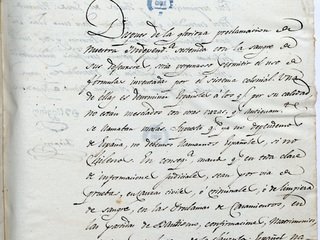 Despues de la gloriosa proclamacion de
nuestra Independ.ª sostenida con la sangre de
sus defensores, sería vergonzoso permitir el uso de
fórmulas inventadas por el sistema colonial. Una
de ellas es denominar Españoles á los q.e por su calidad
no están mezclados con otras razas, q.e antiguam.te
se llamaban malas. Supuesto q.e ya no dependemos
de España, no debemos llamarnos Españoles, si no
Chilenos. En consec.ª mando q.e en toda clase
de informaciones judiciales, sean por via de
prueba, en causas civiles, ó criminales, ó de limpieza
de sangre, en las proclamas de Casamientos, en
las partidas de Bautismo, confirmaciones, Matrimonios,